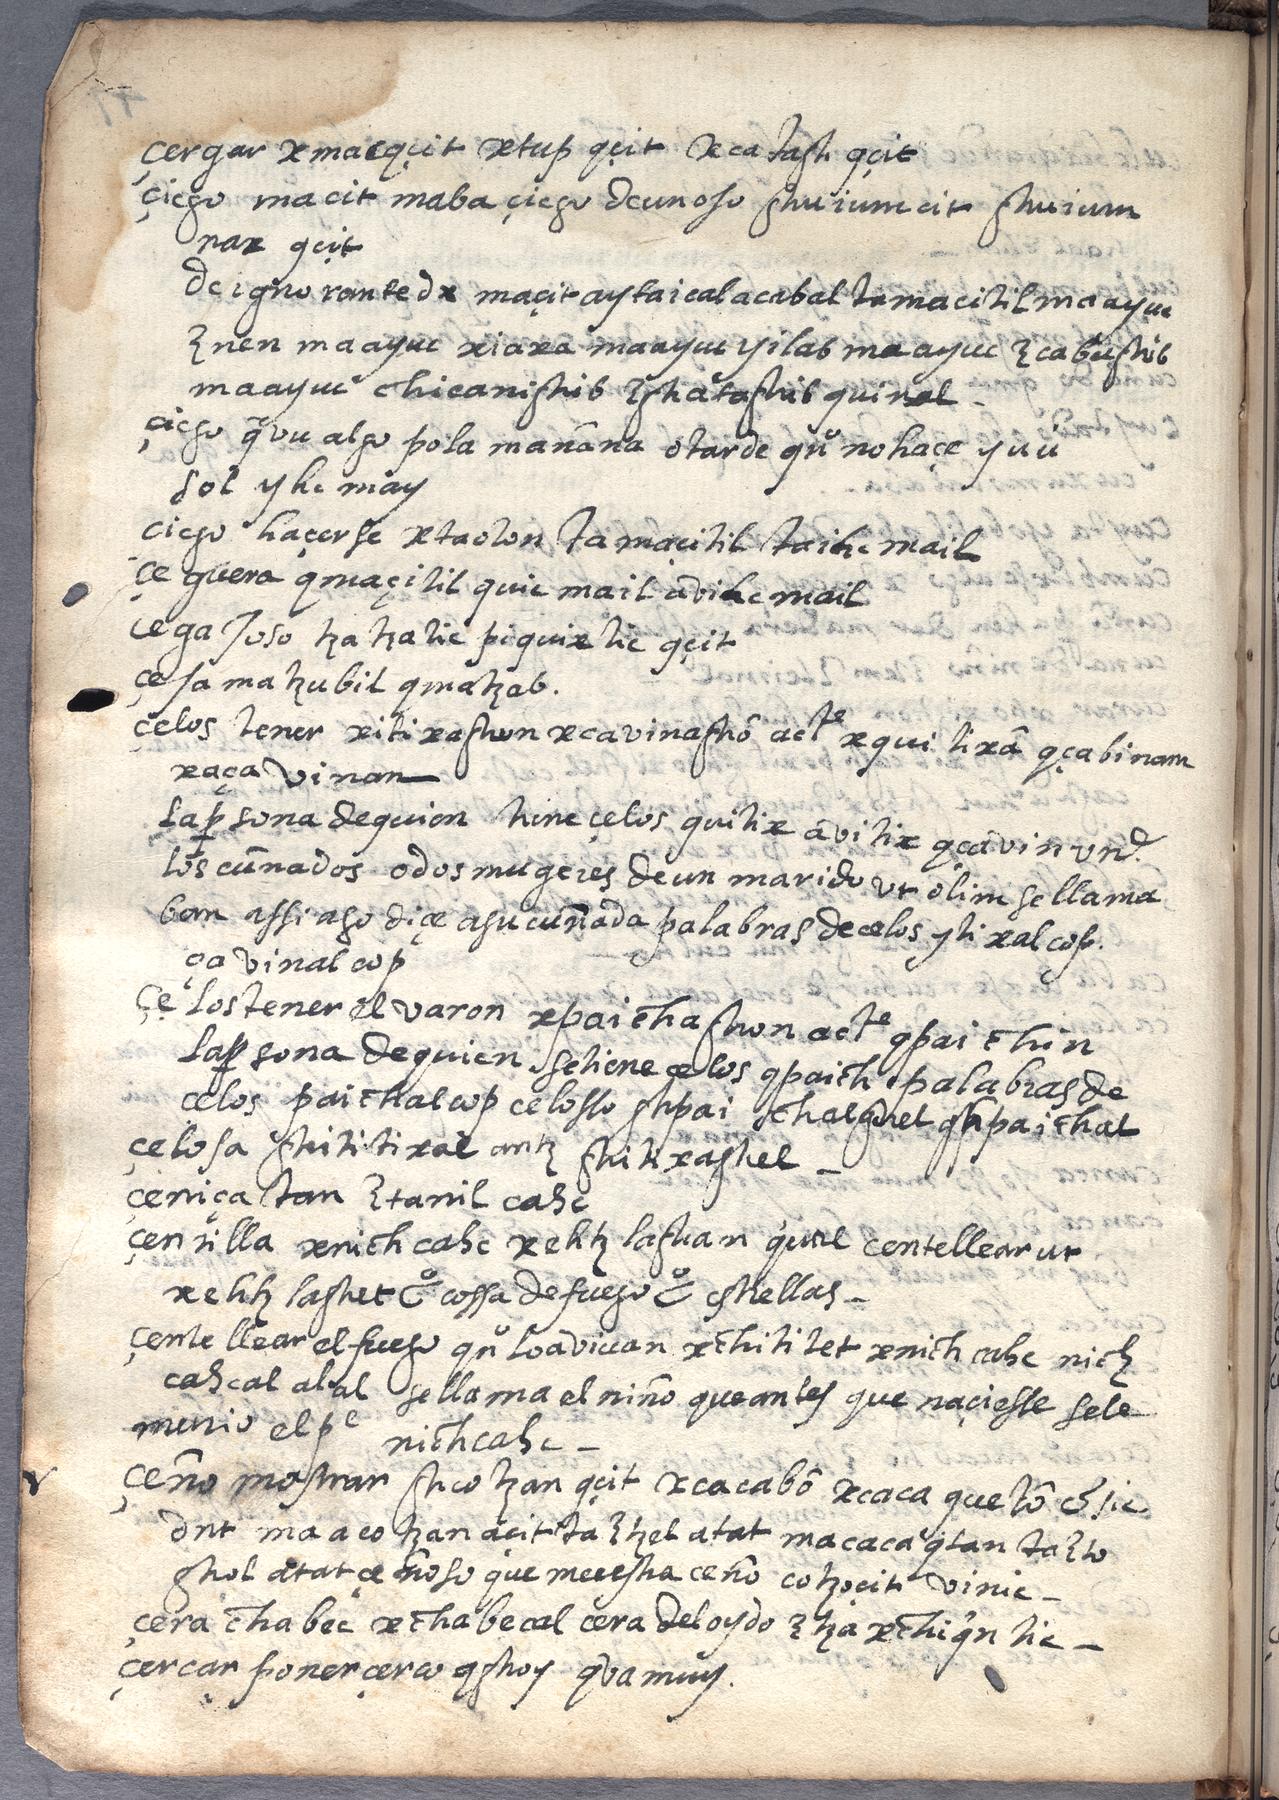 çergar xmacqçit xtup qçit xcatash qçit
çiego macit maba çiego de un ojo shuiumcit shuium
nax qçit
de ignorante dx maçit aytaical acabal ta macitil maayuc
ʒnen maayuc xiaxa maayuc yilab maayuc ʒcabushib
maayuc chicanishib ʒshatashib quinal
çiego q̃ vu algo pola manãna o tarde qũ no haçe y uu
sol yhc may
çiego haçerse xtaolon ta maçitil taihc mail
çeguera qmaçitil quic mail avihc mail
çegajoso tzatzatic piquix tic qçit
çeja matzubil qmatzab.
çelos tener xitixashon xcavinashõ acte xquitixã qçabinam
xaça vinan
la psona de quien tiene çelos quitix avitix qçavin vnd.
los cunãdos o dos mugeres de un marido vt olim se llama
ban assi algo diçe a su cunãda palabras de celos ytixalcop.
ça vinal cop
çelos tener el varon xpaichashon acte qpaichin
la psona de quien se tiene celos qpaich. palabras de
celos paichalcop celosso shpaichalshel qshpaichal
çelosa shititixal antz shitixashel
çeniça tan ʒtanil cahc
çentilla xnich cahc xehtz lashan qual centellear ut
xehtz lashet cossa de fuego estrellas
çentellear el fuego qũ lo avivan xchititet xnich cahc nich
cahcal alal se llama el niño que antes que naçiesse se le
murio el pe nichcahc
çeño mostrar shcotzan qçit xcacabõ xcaca quetõ
dnt ma acotzan açit ta ʒtzel atat macaca qtan taʒto
shol atat çeñoso que muestra ceño cotzoçit vinic
çera chabec xchabecal cera del oydo ʒtza xchiqn tic
çercar poner çerco qshoy qvamuy.